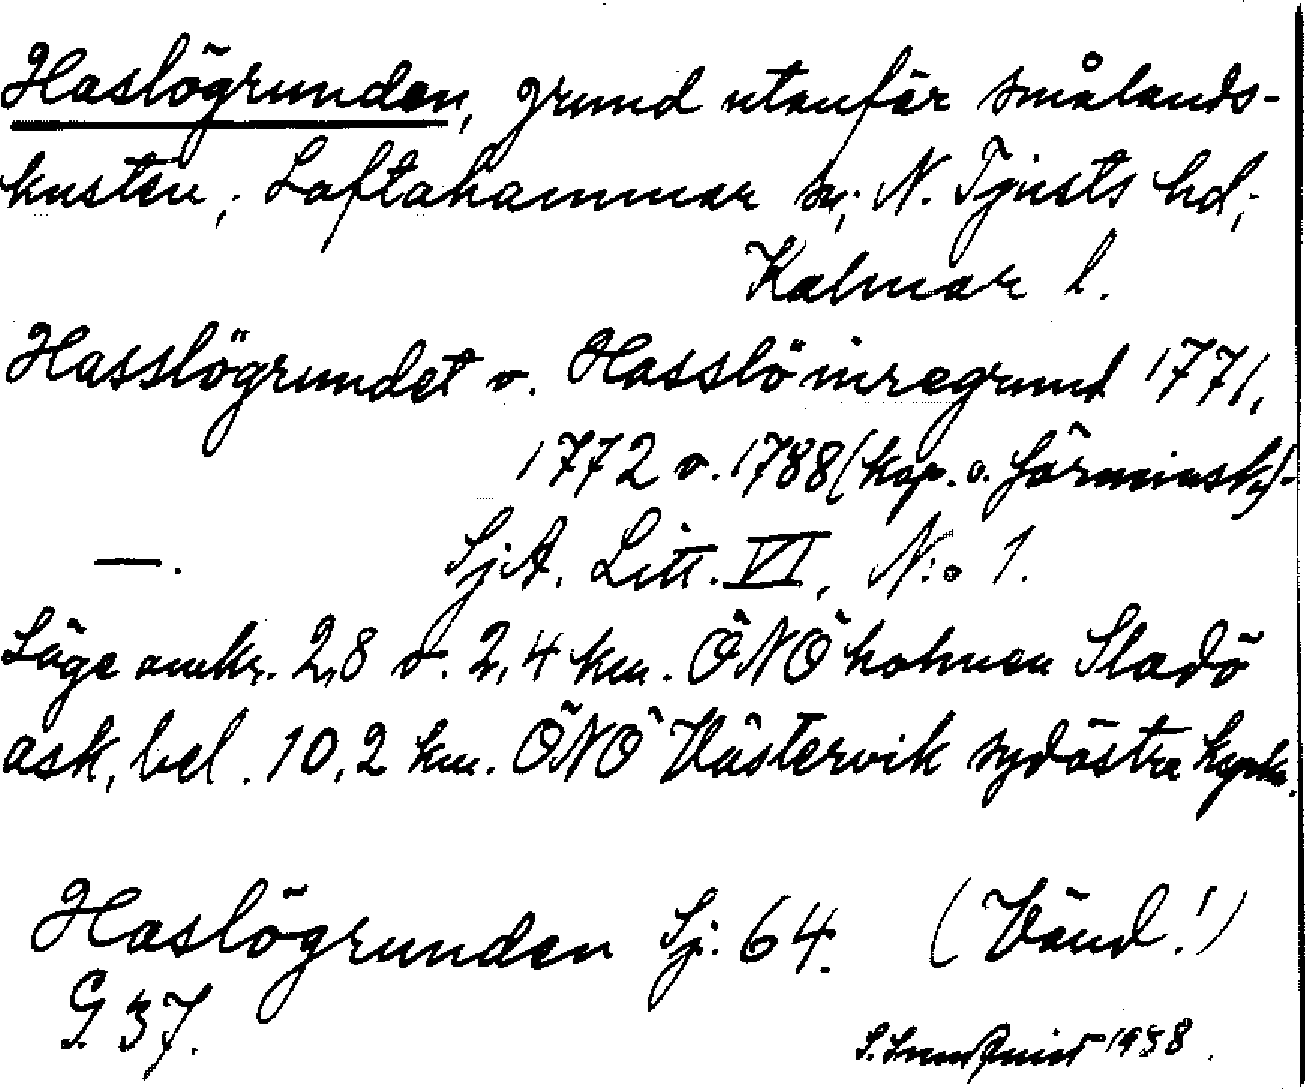 Haslögrunden, grund utanför smålands-
kusten; Loftahammar sn; N. Tjusts hd;
Kalmar l.
Hasslögrundet o. Hasslö inregrund 1771,
1772 o. 1788 (kop. o.
—. SjA. Litt. VI, N:o 1.
Läge omkr. 2,8 o. 2,4 km. ÖNÖ holmen Sladö
ask, bel. 10,2 km. ÖNÖ Västervik sydöstra kyrka.
Haslögrunden Sj. 64. (Vänd!)
G 37.
1938.